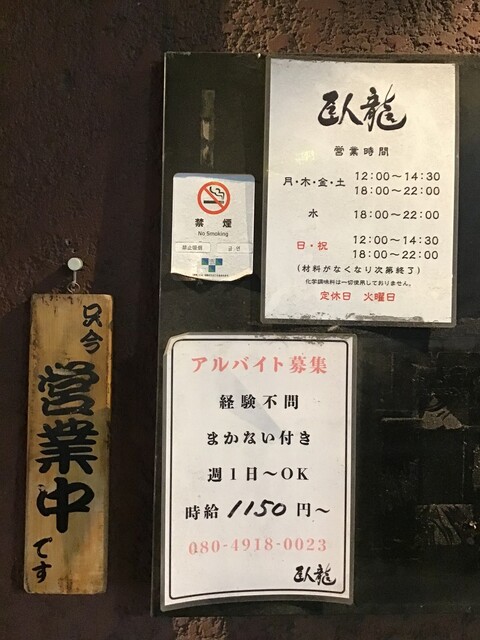 臥龍
営業時間
月・木・金・土 12:00〜14:30
18:00〜22:00
水 18:00〜22:00
日・祝 12:00〜14:30
18:00〜22:00
(材料がなくなり次第終了)
化学調味料は一切使用しておりません。
定休日 火曜日
禁煙
No Smoking
只今
営業中
です
アルバイト募集
経験不問
まかない付き
週1日〜OK
時給 1150円〜
080-4918-0023
臥龍